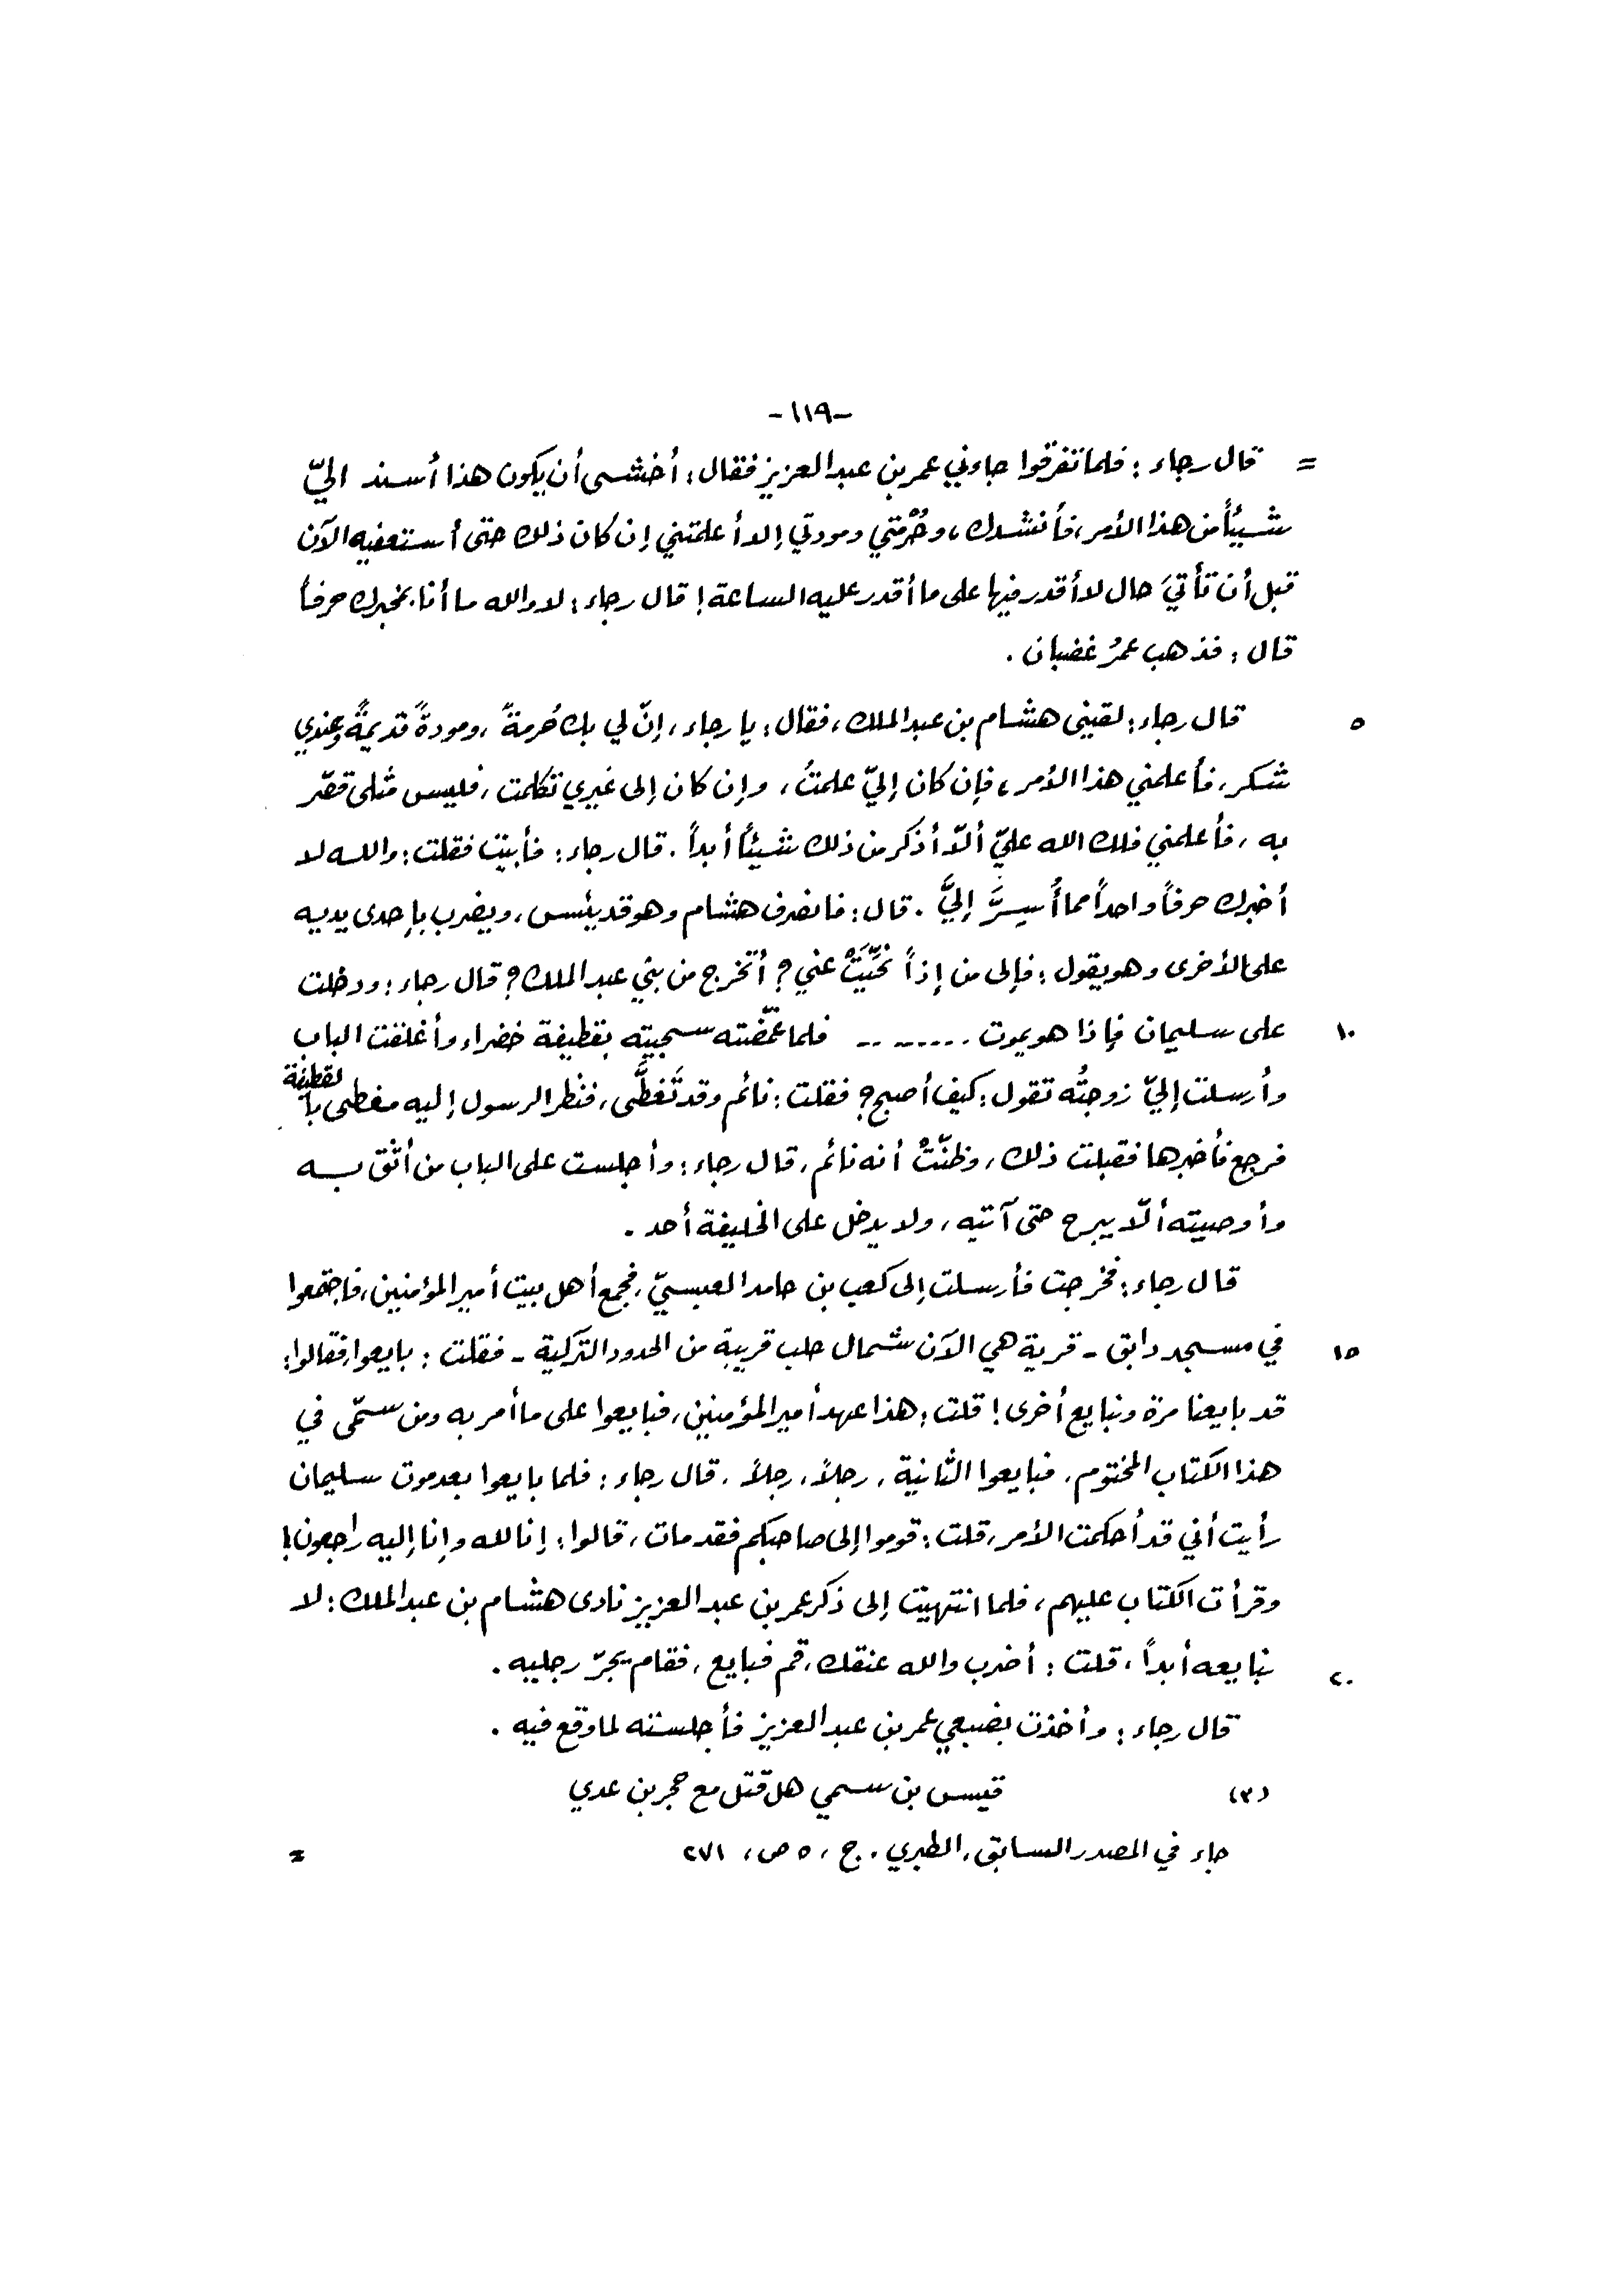 -١١٩-
= قال رجاء: فلما تفرقوا جاءني عمر بن عبد العزيز فقال: أخشى أن يكون هذا أسند اليّ
شيئاً من هذا الأمر، فأنشدك، وحُرْمتي ومودتي إلا أعلمتني إن كان ذلك حتى أستعفيه الآن
قبل أن تأتيَ حال لا أقدر فيها على ما أقدر عليه الساعة! قال رجاء: لا والله ما أنا بمخبرك حرفاً
قال: فذهب عمرُ غضبان.
٥ قال رجاء: لقيني هشام بن عبد الملك، فقال: يا رجاء، إنّ لي بك حُرمةً، ومودةً قديمةً وعندي
شكر، فأعلمني هذا الأمر، فإن كان إليّ علمتُ، وإن كان إلى غيري تكلمت، فليس مثلي قصّر
به، فأعلمني فلك الله عليّ ألاّ أذكر من ذلك شيئاً أبداً. قال رجاء: فأبيت فقلت: والله لا
أخبرك حرفاً واحداً مما أُسِرَّ إليَّ. قال: فانصرف هشام وهو قد يئس، ويضرب بإحدى يديه
على الأخرى وهو يقول: فإلى من إذاً نُحِّيَتْ عني؟ أتخرج من بني عبد الملك؟ قال رجاء: ودخلت
١٠ على سليمان فإذا هو يموت ........ فلما غمّضته سجيته بقطيفة خضراء وأغلقت الباب
وأرسلت إليّ زوجتُه تقول: كيف أصبح؟ فقلت: نائم وقد تَغطَّى، فنظر الرسول إليه مغطى بالقطيفة
فرجع فأخبرها فقبلت ذلك، وظنّتْ أنه نائم، قال رجاء: وأجلست على الباب من أثق به
وأوصيته ألاّ يبرح حتى آتيه، ولا يدخل على الخليفة أحد.
قال رجاء: فخرجت فأرسلت إلى كعب بن حامد العبسيّ، فجمع أهل بيت أمير المؤمنين، فاجتمعوا
١٥ في مسجد دابق - قرية هي الآن شمال حلب قريبة من الحدود التركية - فقلت: بايعوا، فقالوا:
قد بايعنا مرة ونبايع أخرى! قلت: هذا عهد أمير المؤمنين، فبايعوا على ما أمر به ومن سمّى في
هذا الكتاب المختوم. فبايعوا الثانية، رجلاً، رجلاً. قال رجاء: فلما بايعوا بعد موت سليمان
رأيت أني قد أحكمت الأمر، قلت: قوموا إلى صاحبكم فقد مات، قالوا: إنا لله وإنا إليه راجعون!
وقرأت الكتاب عليهم، فلما انتهيت إلى ذكر عمر بن عبد العزيز نادى هشام بن عبد الملك: لا
٢٠ نبايعه أبداً، قلت: أضرب والله عنقك، قم فبايع، فقام يجرّ رجليه.
قال رجاء: وأخذت بضبعي عمر بن عبد العزيز فأجلسته لما وقع فيه.
(٣) قيس بن سمي هل قتل مع حجر بن عدي
جاء في المصدر السابق، الطبري. ج، ٥ ص، ٢٧١ =